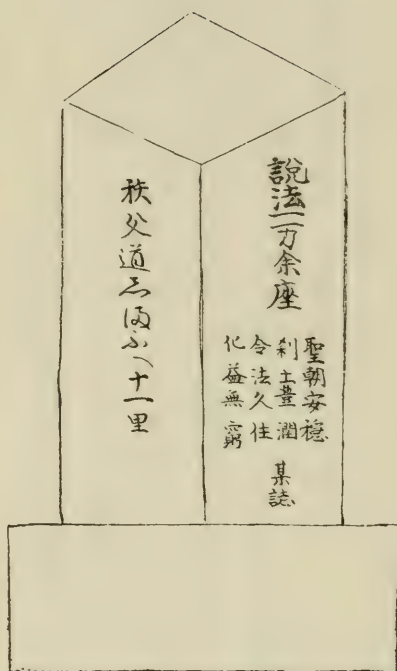 説法二万余座
聖朝安穏
刹土豊潤
令法久住
化益無窮
某誌
秩父道志満ぶへ十一里